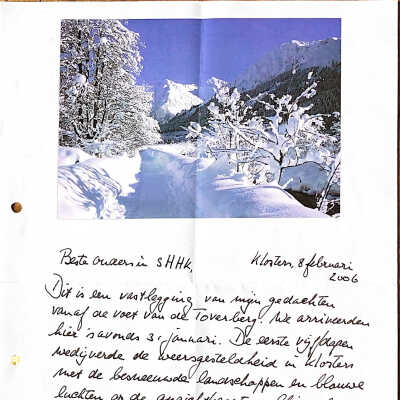 Beste ouders in SHHK,
Klosters, 8 februari
2006
Dit is een vastlegging van mijn gedachten
vanaf de voet van de Toverberg. We arriveerden
hier 's avonds 31 januari. De eerste vijf dagen
wedijverde de weersgesteldheid in Klosters
met de besneeuwde landschappen en blauwe
luchten op de